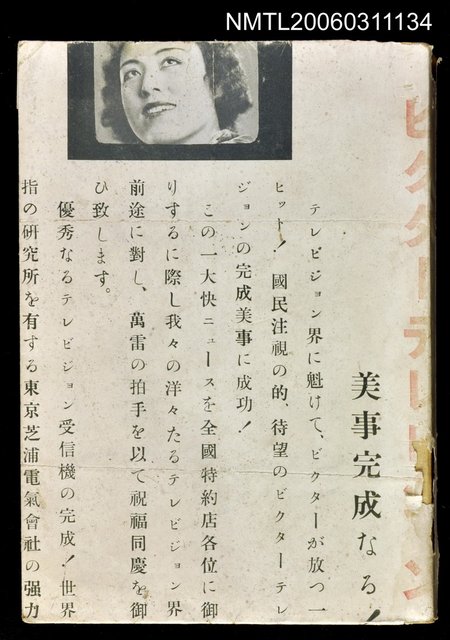 NMTL20060311134
ビクターテレビジョン
美事完成なる!
テレビジョン界に魁けて、ビクターが放つ一
ヒット! 國民注視の的、待望のビクターテレ
ジョンの完成美事に成功!
この一大快ニュースを全國特約店各位に御
りするに際し我々の洋々たるテレビジョン界
前途に對し、萬雷の拍手を以て祝福同慶を御
ひ致します。
優秀なるテレビジョン受信機の完成!世界
指の研究所を有する東京芝浦電氣會社の强力